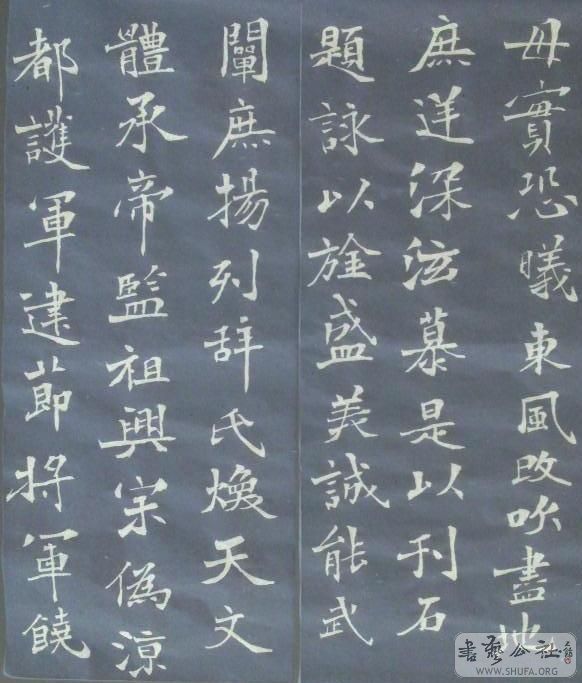 毋實恐曦東風改吹盡地
庶深泫慕是以刊石
題詠以旌盛美誠能武
闡庶揚列辞氏煥天文
體承帝監祖興宋偽涼
都護軍建節将軍饒
書藝公社
WWW.SHUFA.ORG